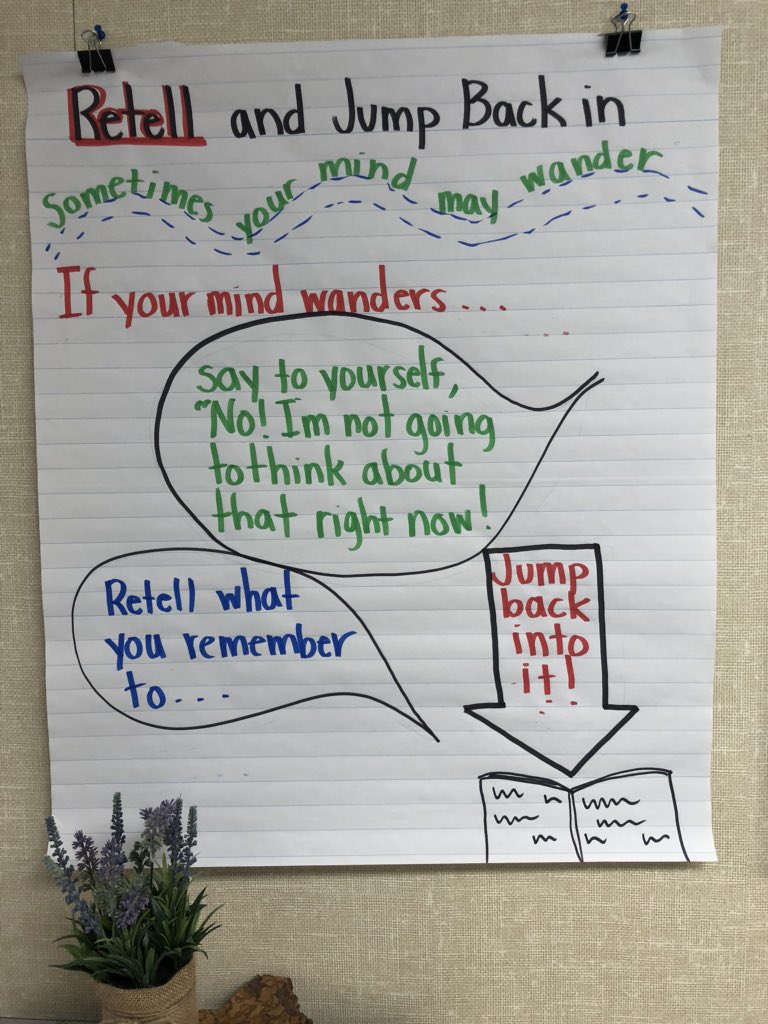 Retell and Jump Back in
Sometimes your mind may wander
If your mind wanders...
say to yourself,
"No! Im not going
to think about
that right now!
Retell what
you remember
to...
Jump
back
into
it!